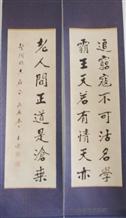 追窮寇不可沽名學
霸王天若有情天亦
老人間正道是滄桑